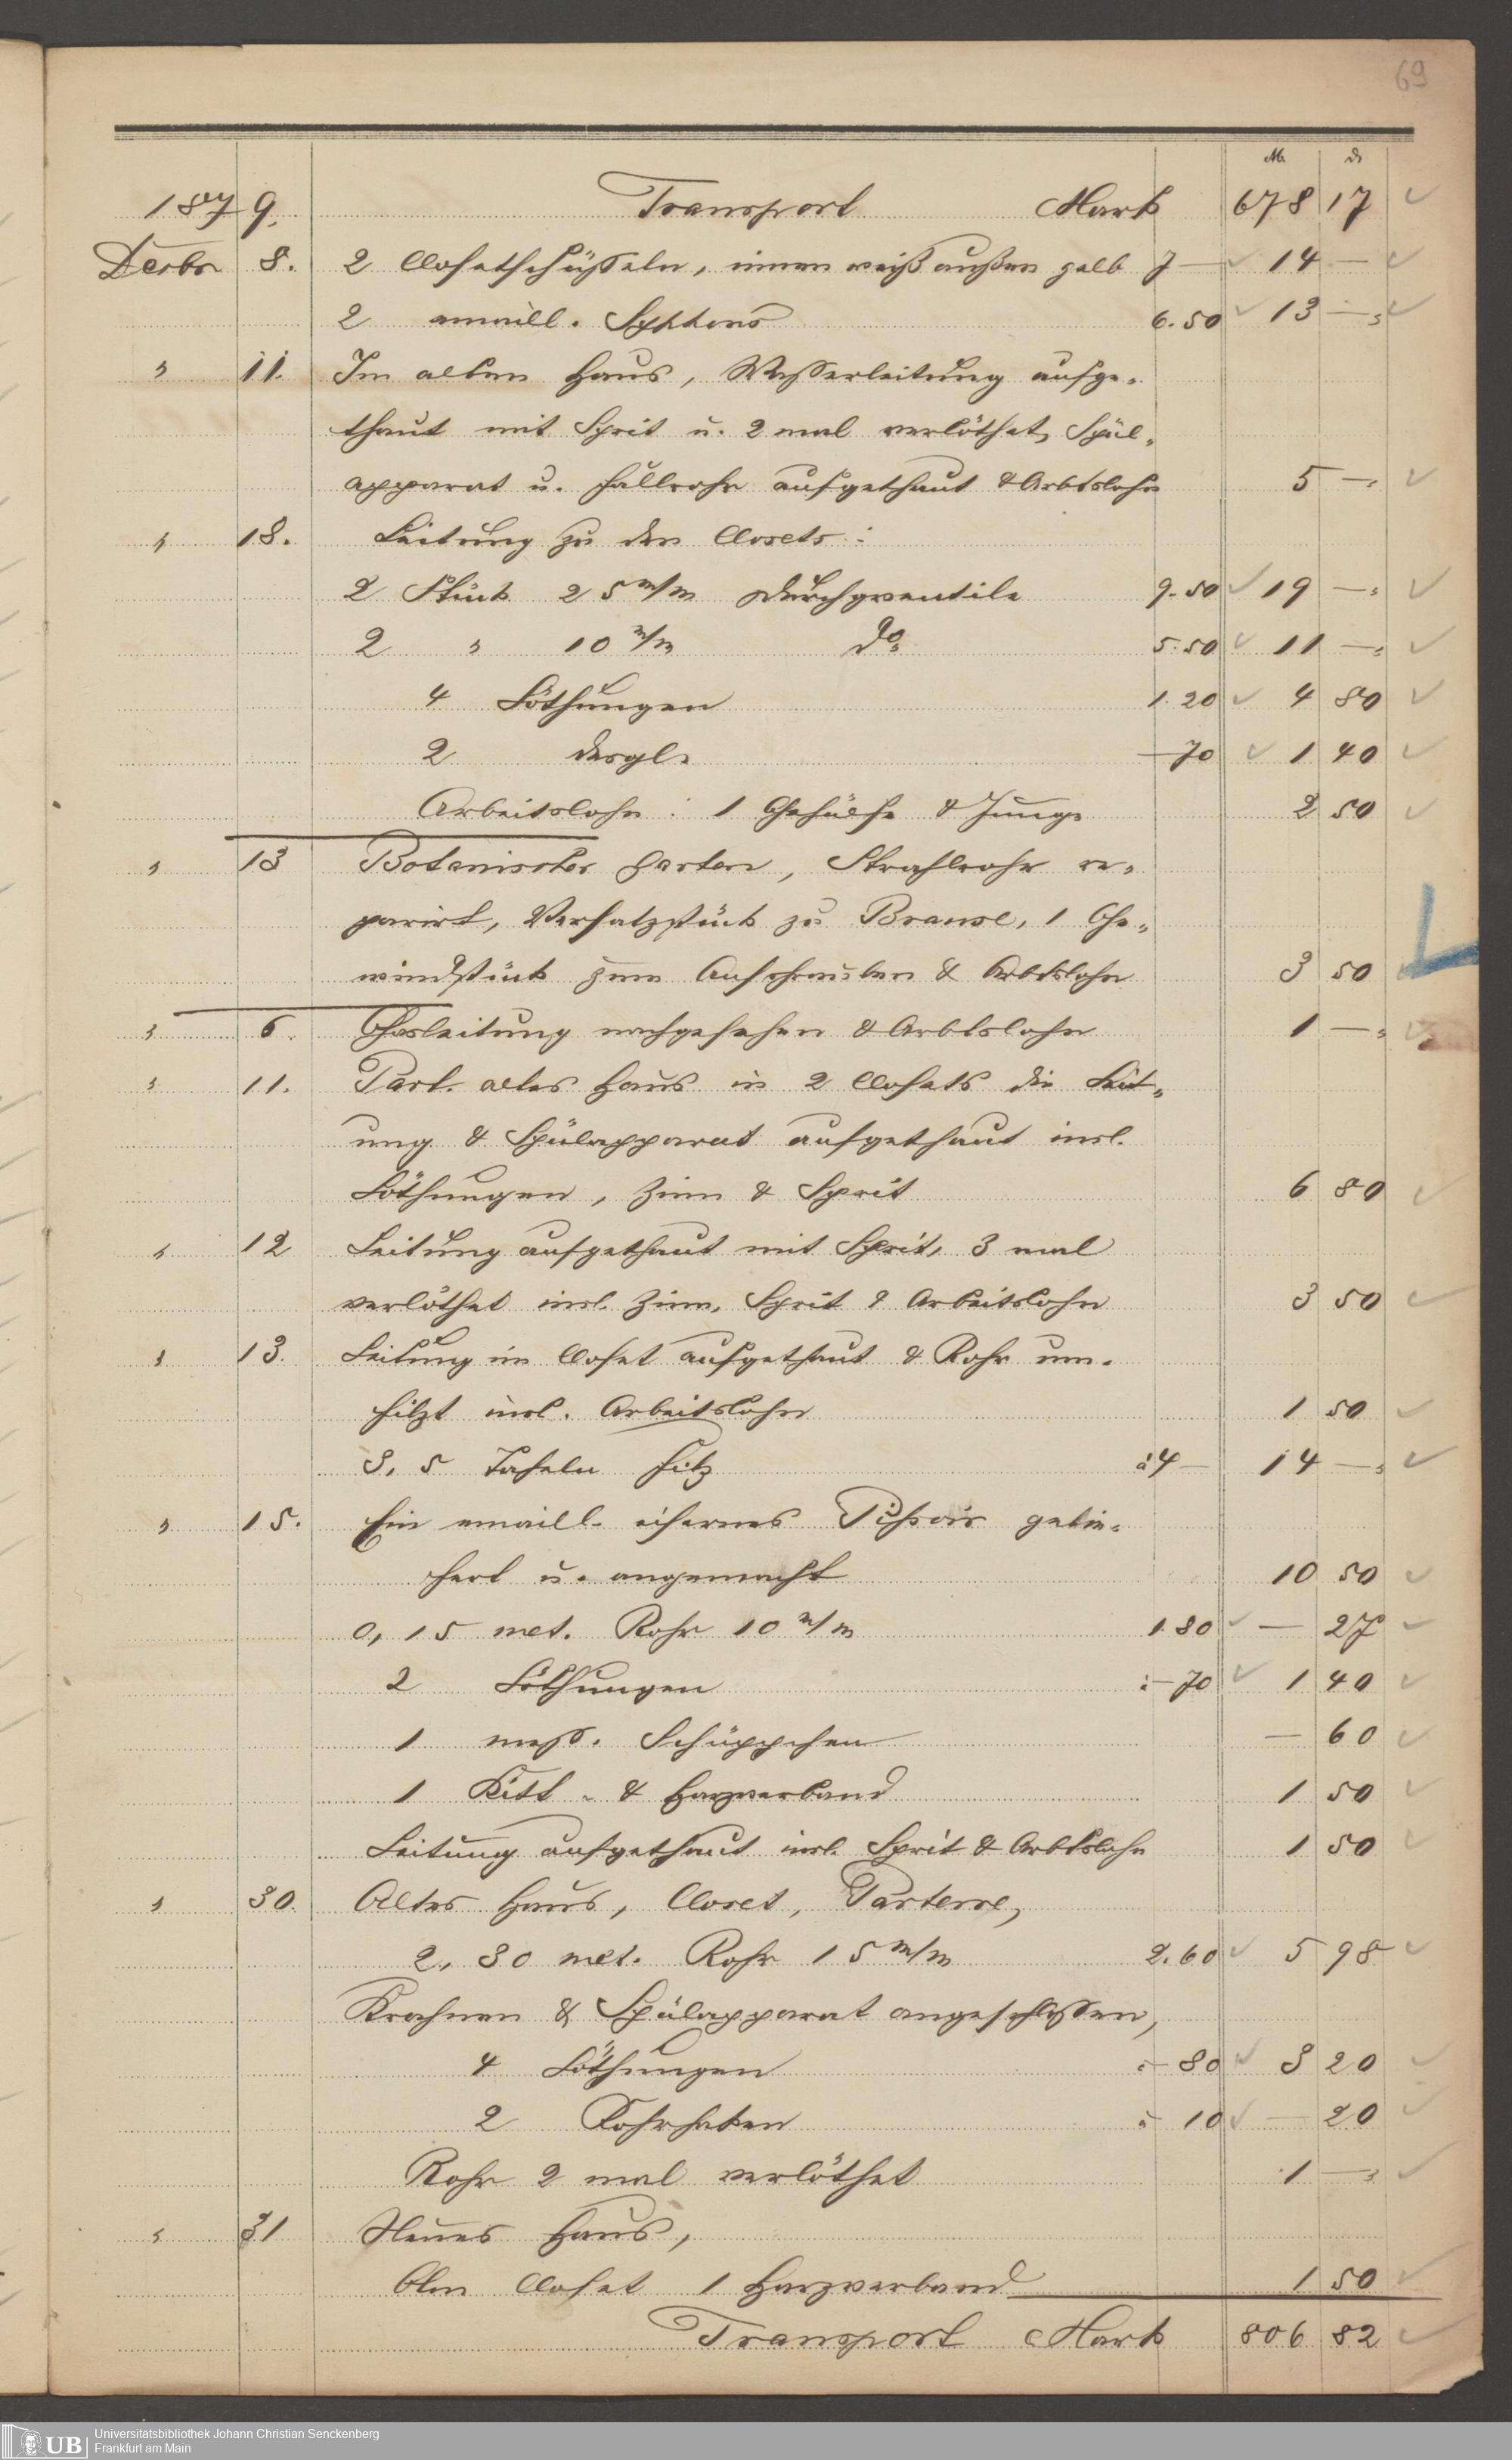 69
M. ₰
1879. Transport Mark 678 17
Decbr 8. 2 Closetschüsseln, innen weiß außen gelb 7 — 14 —
2 emaill. Syphons 6.50 13 —
" 11. Im alten Haus, Wasserleitung aufge-
thaut mit Sprit u. 2 mal verlöthet, Spül-
apparat u. Fallrohr aufgethaut & Arbtslohn 5 —
" 18. Leitung zu den Closets:
2 Stück 25 m/m Durchgventile 9.50 19 —
2 " 10 m/m do. 5.50 11 —
4 Löthungen 1.20 4 80
2 desgl. — 70 1 40
Arbeitslohn: 1 Gehülfe & Junge 2 50
" 13 Botanischer Garten, Strahlrohr re-
parirt, Versatzstück zu Brause, 1 Ge-
windstück zum Aufschrauben & Arbtslohn 3 50
" 6. Gasleitung nachgesehen & Arbtslohn 1 —
" 11. Part. altes Haus in 2 Closets die Leit-
ung & Spülapparat aufgethaut incl.
Löthungen, Zinn & Sprit 6 80
" 12 Leitung aufgethaut mit Sprit, 3 mal
verlöthet incl. Zinn, Sprit & Arbeitslohn 3 50
" 13. Leitung im Closet aufgethaut & Rohr um-
filzt incl. Arbeitslohn 1 50
3,5 Tafeln Filz à 4 — 14 —
" 15. Ein emaill. eisernes Pissoir gelie-
fert u. angemacht 10 50
0,15 met. Rohr 10 m/m 1.80 — 27
2 Löthungen à — 70 1 40
1 mess. Schüppchen — 60
1 Kitt- & Harzverband 1 50
Leitung aufgethaut incl. Sprit & Arbtslohn 1 50
" 30. Altes Haus, Closet, Parterre,
2,30 met. Rohr 15 m/m 2.60 5 98
Krahnen & Spülapparat angeschlossen,
4 Löthungen à — 80 3 20
2 Rohrhaken à 10 — 20
Rohr 2 mal verlöthet 1 —
" 31 Neues Haus,
Closet 1 Harzverband 1 50
Transport Mark 806 82
UB Universitätsbibliothek Johann Christian Senckenberg
Frankfurt am Main